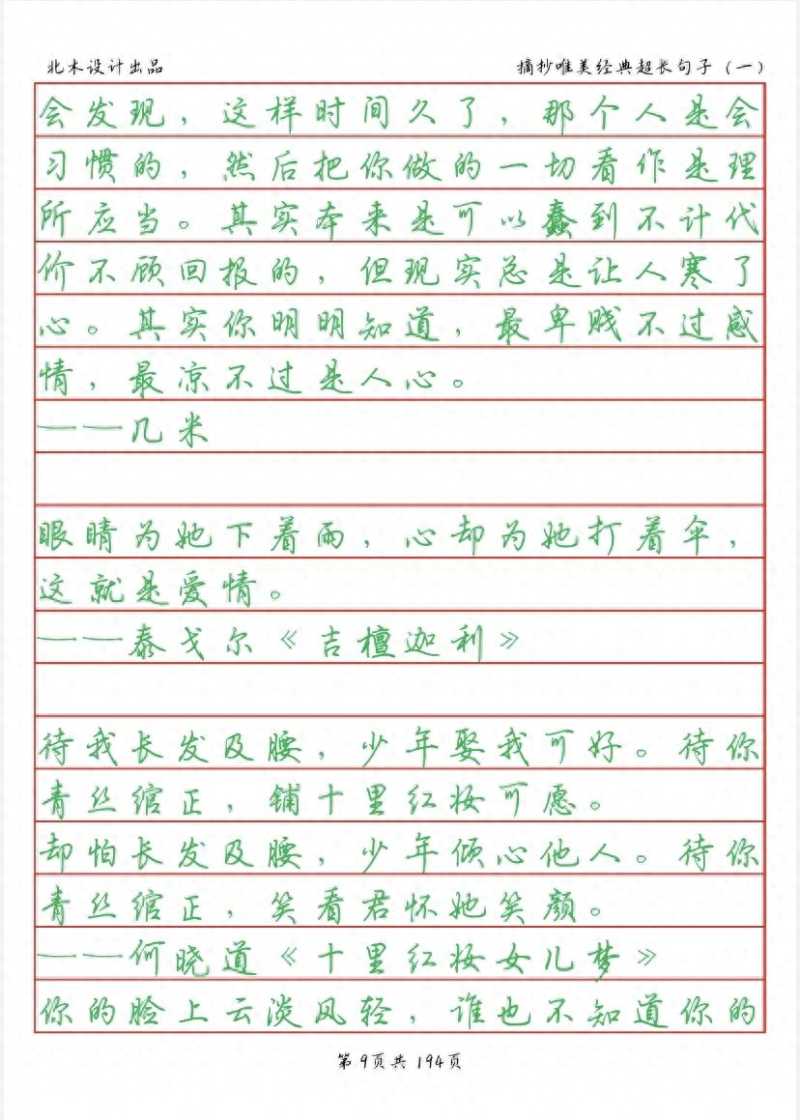 北木设计出品
摘抄唯美经典超长句子（一）
会发现，这样时间久了，那个人是会
习惯的，然后把你做的一切看作是理
所应当。其实本来是可以蠢到不计代
价不顾回报的，但现实总是让人寒了
心。其实你明明知道，最卑贱不过感
情，最凉不过是人心。
——几米
眼睛为她下着雨，心却为她打着伞，
这就是爱情。
——泰戈尔《吉檀迦利》
待我长发及腰，少年娶我可好。待你
青丝绾正，铺十里红妆可愿。
却怕长发及腰，少年倾心他人。待你
青丝绾正，笑看君怀她笑颜。
——何晓道《十里红妆女儿梦》
你的脸上云淡风轻，谁也不知道你的
第9页共194页